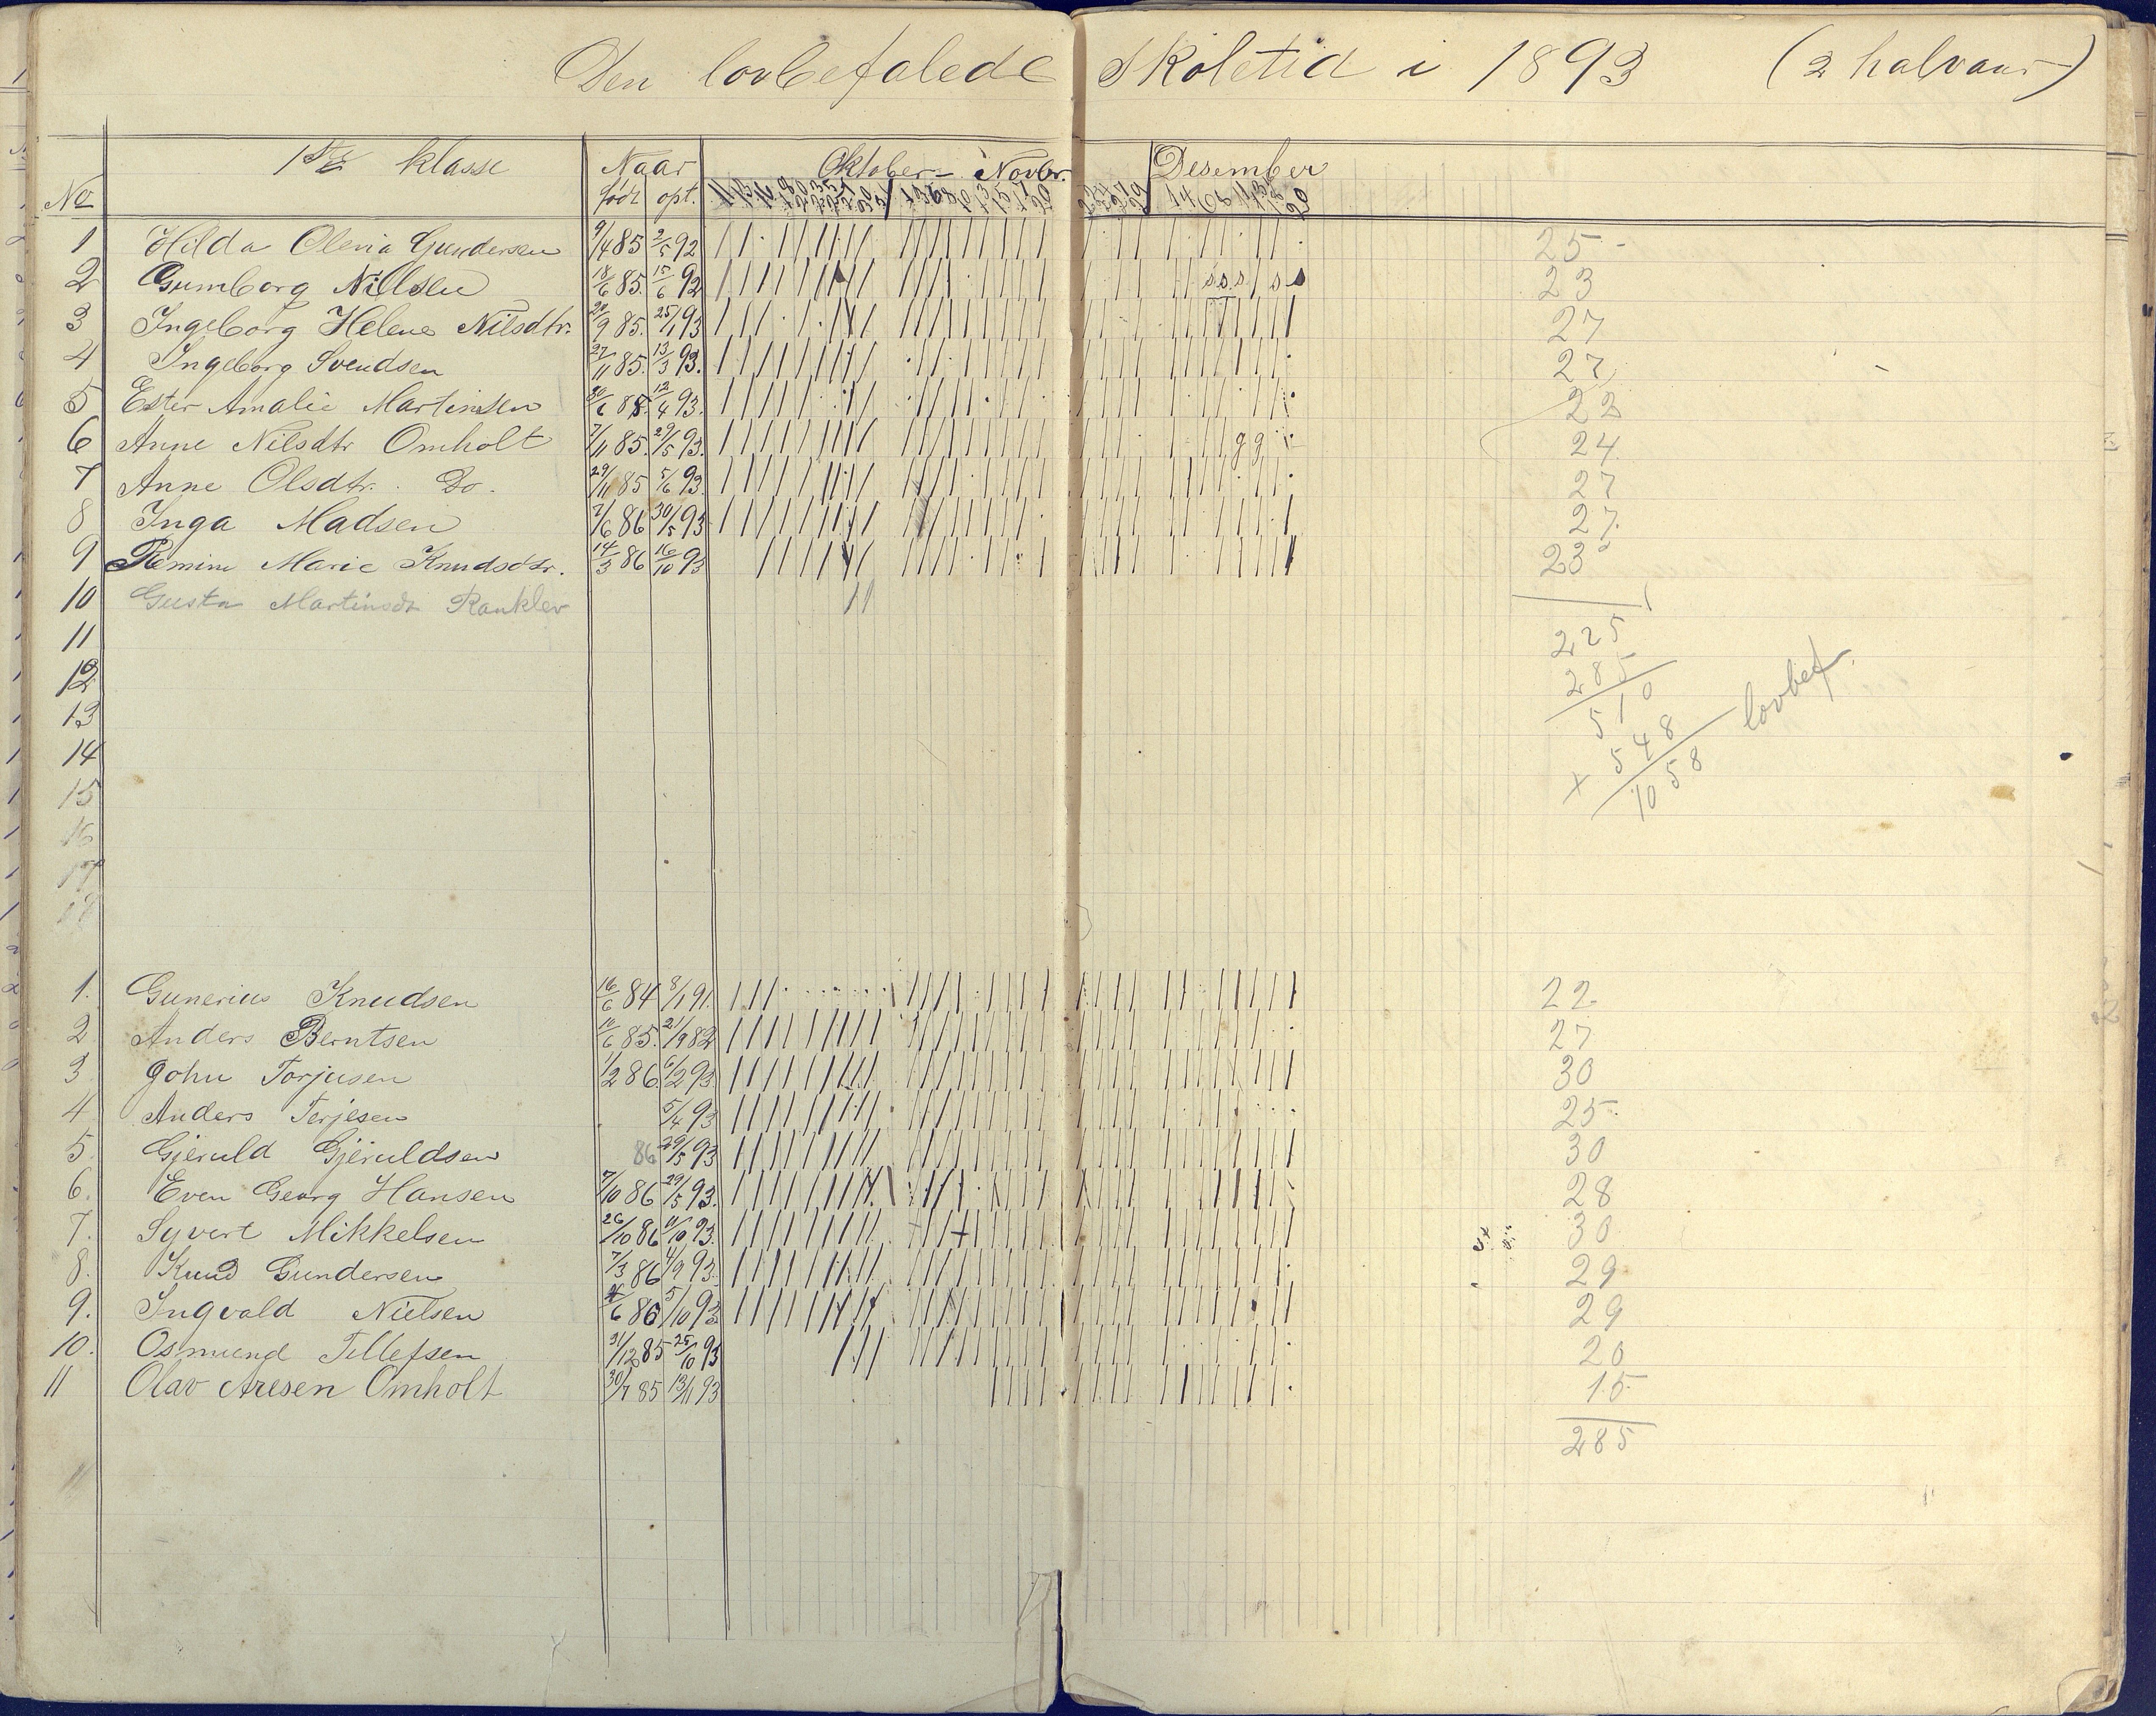 Den lovbefalede Skoletid i 1893 (2 halvaar)
No 1ste klasse Naar Oktober - Novbr. Desember
født opt.
1 Hilda Olevia Gundersen 9/4 85 2/5 92 25
2 Gumborg Nillsen 18/6 85. 15/6 92 23
3 Ingeborg Helene Nilsdtr. 9 85. 25/1 93 27
4 Ingeborg Svendsen 27/11 85. 13/3 93. 27
5 Ester Amalie Martinsen 12/4 93. 22
6 Anne Nilsdtr Omholt 7/11 85. 29/5 93. 24
7 Anne Olsdtr. Do. 29/11 85 5/6 93. 27
8 Inga Madsen 7/6 86 30/5 93 27
9 Marie Knudsdtr. 14/3 86 16/10 93 23
10 Gusta Martinsdt
11
12
13
14
15
16
17
18
225
285
510
+ 548
1058 lovbef.
1. Gunerius Knudsen 16/6 84 8/1 91. 22
2 Anders Berntsen 85. 27
3 John Torjusen 1/2 86. 6/2 93. 30
4 Anders Terjesen 5/4 93 25
5. Gjeruld Gjeruldsen 86 29/5 93 30
6. Even Georg Hansen 7/10 86 29/5 93. 28
7. Syvert Mikkelsen 26/10 86 11/10 93. 30
8. Knud Gundersen 7/3 86 4/9 93. 29
9. Ingvald Nielsen 6 86 5/10 93 29
10. Osmund Tellefsen 31/12 85 25/10 93 20
11 Olav Aresen Omholt 30/7 85 13/11 93 15
285